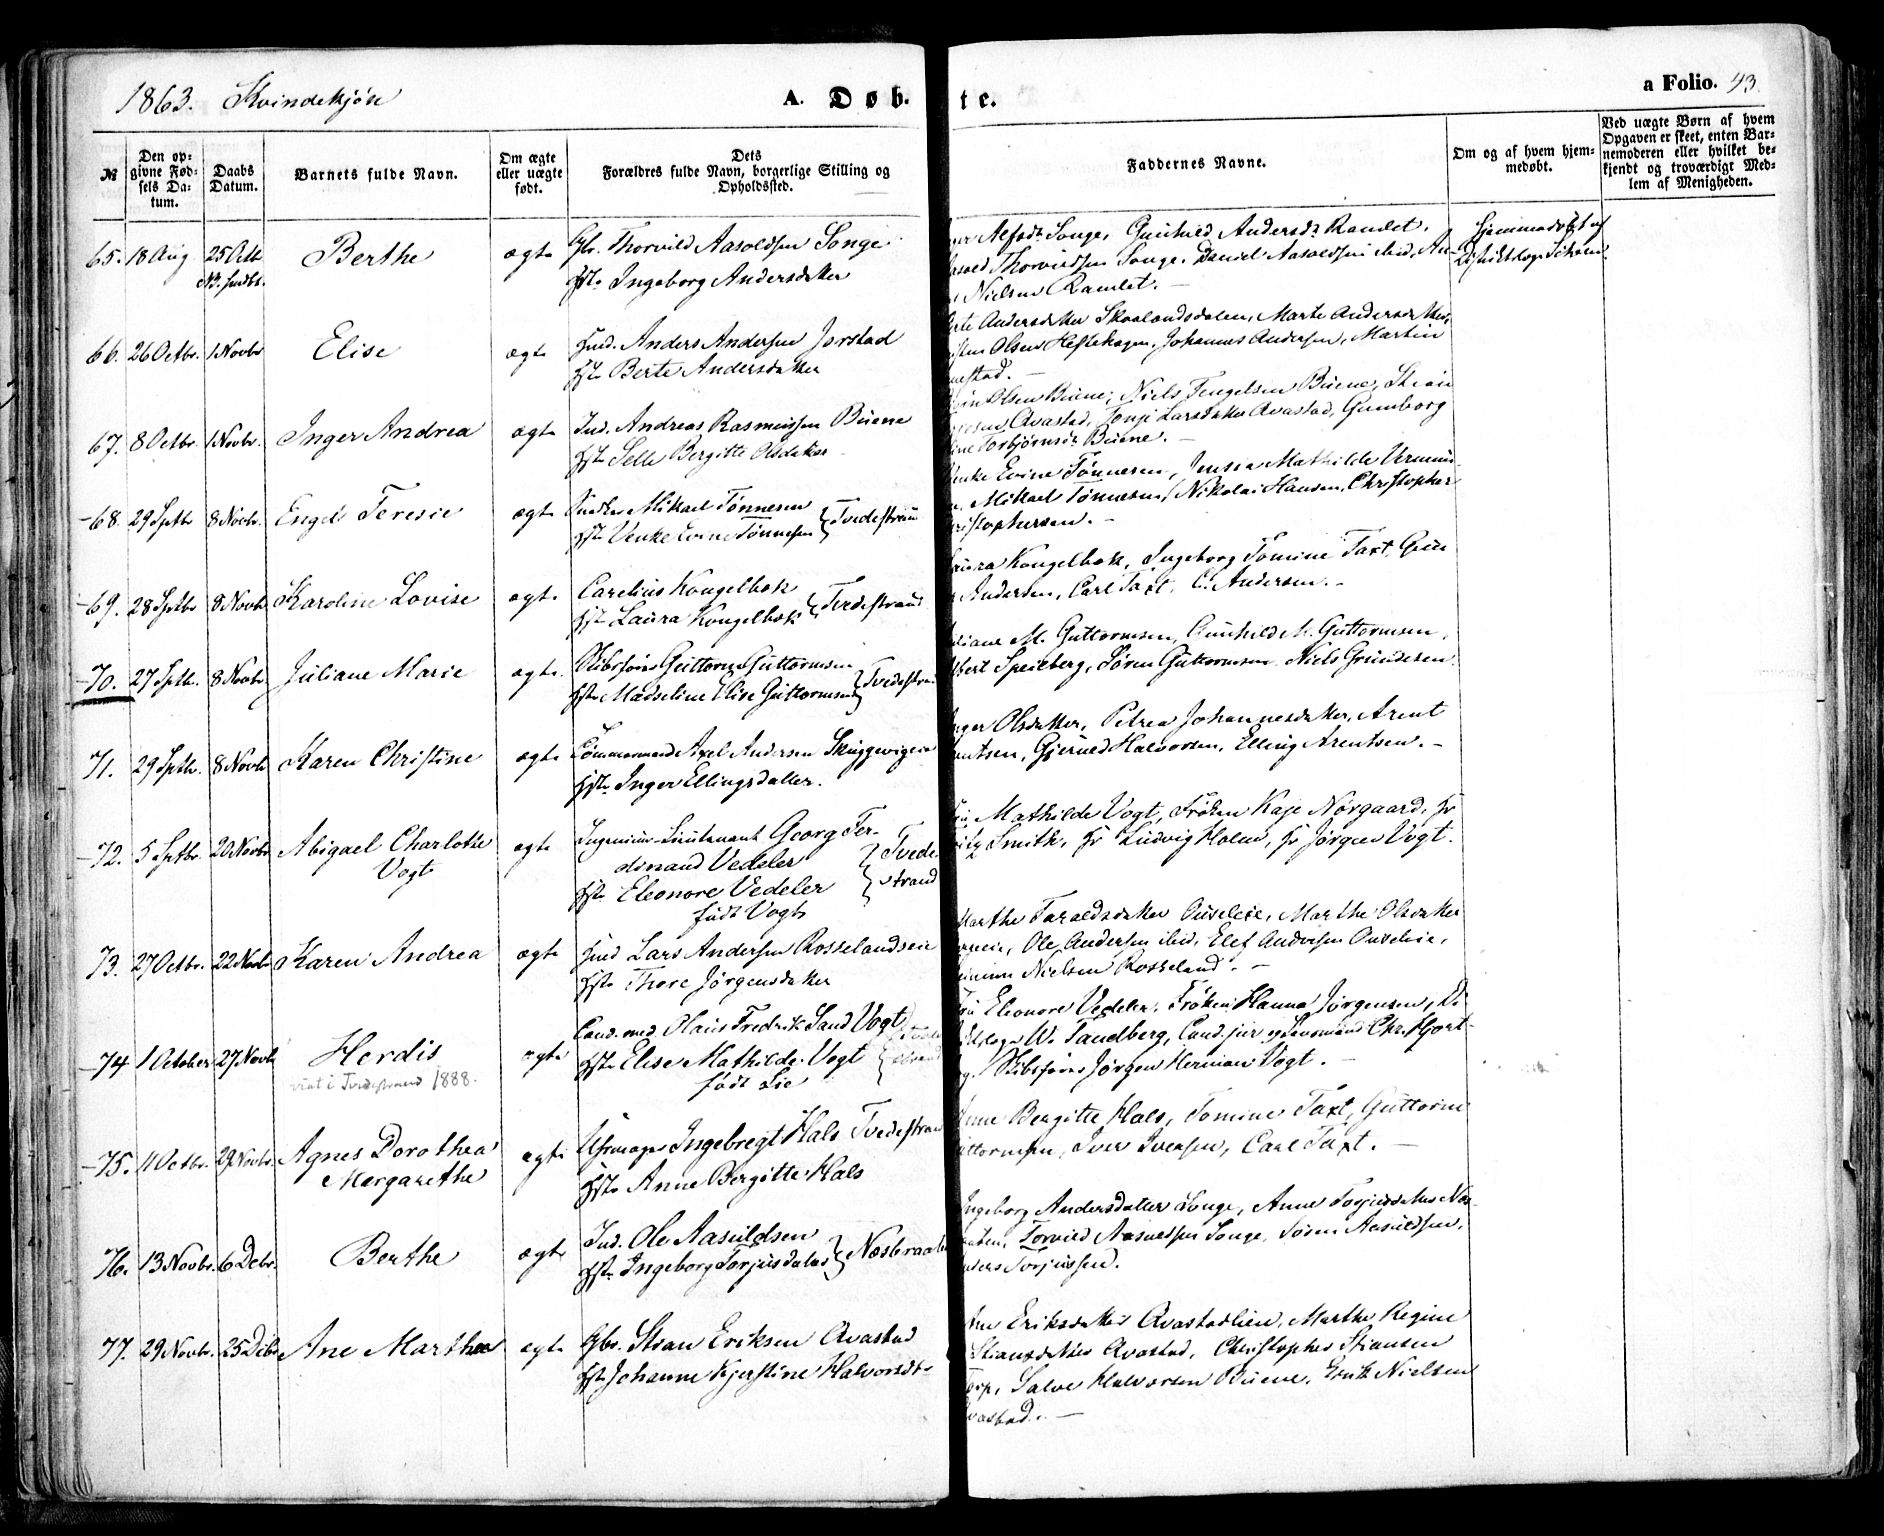 1863. Kvindekjøn
A. Døb-
te.
a Folio. 43.
№
Den op-
givne Fød-
sels Da-
tum.
Daabs
Datum.
Barnets fulde Navn.
Om ægte
eller uægte
født.
Dets
Forældres fulde Navn, borgerlige Stilling og
Opholdssted.
Faddernes Navne.
Om og af hvem hjem-
medøbt.
Ved uægte Børn af hvem
Opgaven er skeet, enten Bar-
nemoderen eller hvilket be-
kjendt og troværdigt Med-
lem af Menigheden.
65. 18 Aug. 25 Oct. Berthe ægte Gbr. Thorvild Aasoldsen Songe
Hst. Ingeborg Andersdatter
Alfsdt. Songe, Gunhild Andersdt. Ramlet,
Thorvildsen Songe, Daniel Aasoldsen ibid, An-
Nielsen Ramlet. -
Hjemmedøbt af
66. 26 Octbr. 1 Novbr. Elise ægte Hmd. Anders Andersen Jorstad
Hst. Berte Andersdatter
Andersdatter Skaalandsdalen, Marte Andersdatter,
Olsen Heftehagen, Johannes Andersen, Martin
67. 8 Octbr. 1 Novbr. Inger Andrea ægte Ind. Andreas Rasmussen Buene
Hst. Selle Bergitte Olsdatter
Olsen Buene, Niels Tengelsen Buene, Stian
Avastad, Tonje Larsdatter Avastad, Gumborg
Torbjørnsdt. Buene. -
68. 29 Sptbr. 8 Novbr. Engel Teresie ægte Mikael Tønnesen
Hst. Venke Evine Tønnesen } Tvedestrand
Evine Tønnesen, Jensia Mathilde
Mikael Tønnesen, Nikolai Hansen, Christopher
Christophersen. -
69. 28 Sptbr. 8 Novbr. Karoline Lovise ægte Carelius Kongelbæk
Hst. Laura Kongelbæk } Tvedestrand
Laura Kongelbæk, Ingeborg Tomine Taxt, Gun
Andersen, Carl Taxt, C. Andersen. -
70. 27 Sptbr. 8 Novbr. Juliane Marie ægte Skibsfører Guttorm Guttormsen
Hst. Madseline Elise Guttormsen } Tvedestrand
Juliane M. Guttormsen, Gunhild M. Guttormsen,
Speieberg, Søren Guttormsen, Niels Gundersen.
71. 29 Sptbr. 8 Novbr. Karen Christine ægte Tømmermand Axel Andersen Skuggevigen
Hst. Inger Ellingsdatter.
Inger Olsdatter, Petrea Johannesdatter, Arent
Arentsen, Gjerued Halvorsen, Elling Arentsen. -
72. 5 Sptbr. 20 Novbr. Abigael Charlotte
Vogt ægte Ingenieur-Lieutenant Georg Fer-
dinand Vedeler
Hst. Eleonore Vedeler
født Vogt } Tvede
strand
Fru Mathilde Vogt, Frøken Kaje Nørgaard, Hr
Smith, Hr Ludvig Holm, Hr Jørgen Vogt.
73. 27 Octbr. 22 Novbr. Karen Andrea ægte Hmd Lars Andersen Rosselandseie
Hst. Thore Jørgensdatter
Marthe Taraldsdatter Ouseleie, Marthe Olsdatter
Ole Andersen ibid, Elef Andersen Ouseleie,
Nielsen Rosseland. -
74 1 October 27 Novbr. Herdis
viet i Tvedestrand 1888. ægte Cand. med. Olaus Fredrik Sand Vogt
Hst. Elise Mathilde Vogt
født Lie } Tvede
strand
Fru Eleonore Vedeler, Frøken Hanna Jørgensen, Di
W. Sandberg, Cand. jur. og Lensmand Chr. Hjort-
Skibsfører Jørgen Herman Vogt. -
75. 11 Octbr. 29 Novbr. Agnes Dorothea
Margarethe ægte Uhrmager Ingebregt Hals Tvedestrand
Hst. Anne Bergitte Hals
Anne Bergitte Hals, Tomine Taxt, Guttorm
Guttormsen, Iver Iversen, Carl Taxt. -
76. 13 Novbr. 6 Debr. Berthe ægte Ind. Ole Aasuldsen
Hst. Ingeborg Torjusdatter } Næsbraaten
Ingeborg Andersdatter Songe, Anne Torjusdatter Næs-
braaten, Torvild Aasoldsen Songe, Søren Aasuldsen,
Anders Torjussen.
77. 29 Novbr. 25 Debr. Ane Marthea ægte Gbr. Stian Eriksen Avastad
Hst. Johanne Kjerstine Halvorsdt.
Eriksdatter Avastadlien, Marthe Regine
Stiansdatter Avastad, Christopher Stiansen
Salve Halvorsen Buene, Erik Nielsen
Avastad. -